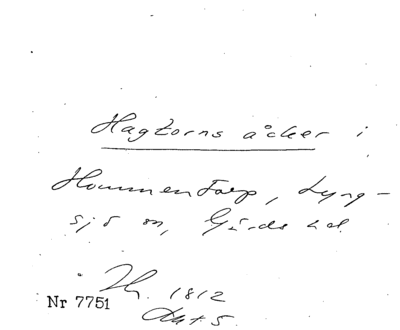 Hagtorns åcker i
Hommentorp, Lyng-
sjö sn, Gärds hd.
Th. 1812
Nr 7751
Akt 5.